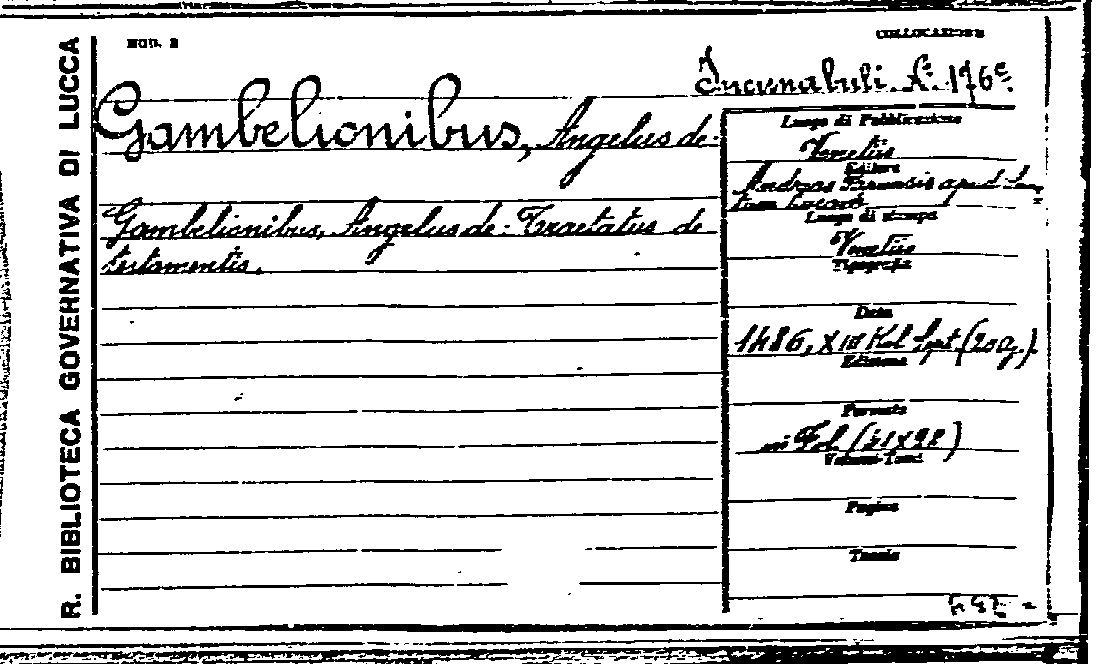 R. BIBLIOTECA GOVERNATIVA DI LUCCA
MOD. 2
COLLOCAZIONE
Incunabuli. N.º 176c.
Gambelionibus, Angelus de-
Gambelionibus, Angelus de- Tractatus de
testamentis.
Luogo di Pubblicazione
Venetiis
Editore
Andreas apud
Luogo di stampa
Venetiis
Tipografia
Data
1486, XIII Kal Sept (20 ag.)
Edizione
Formato
in Fol.
Volumi-Tomi
Pagine
Tavole